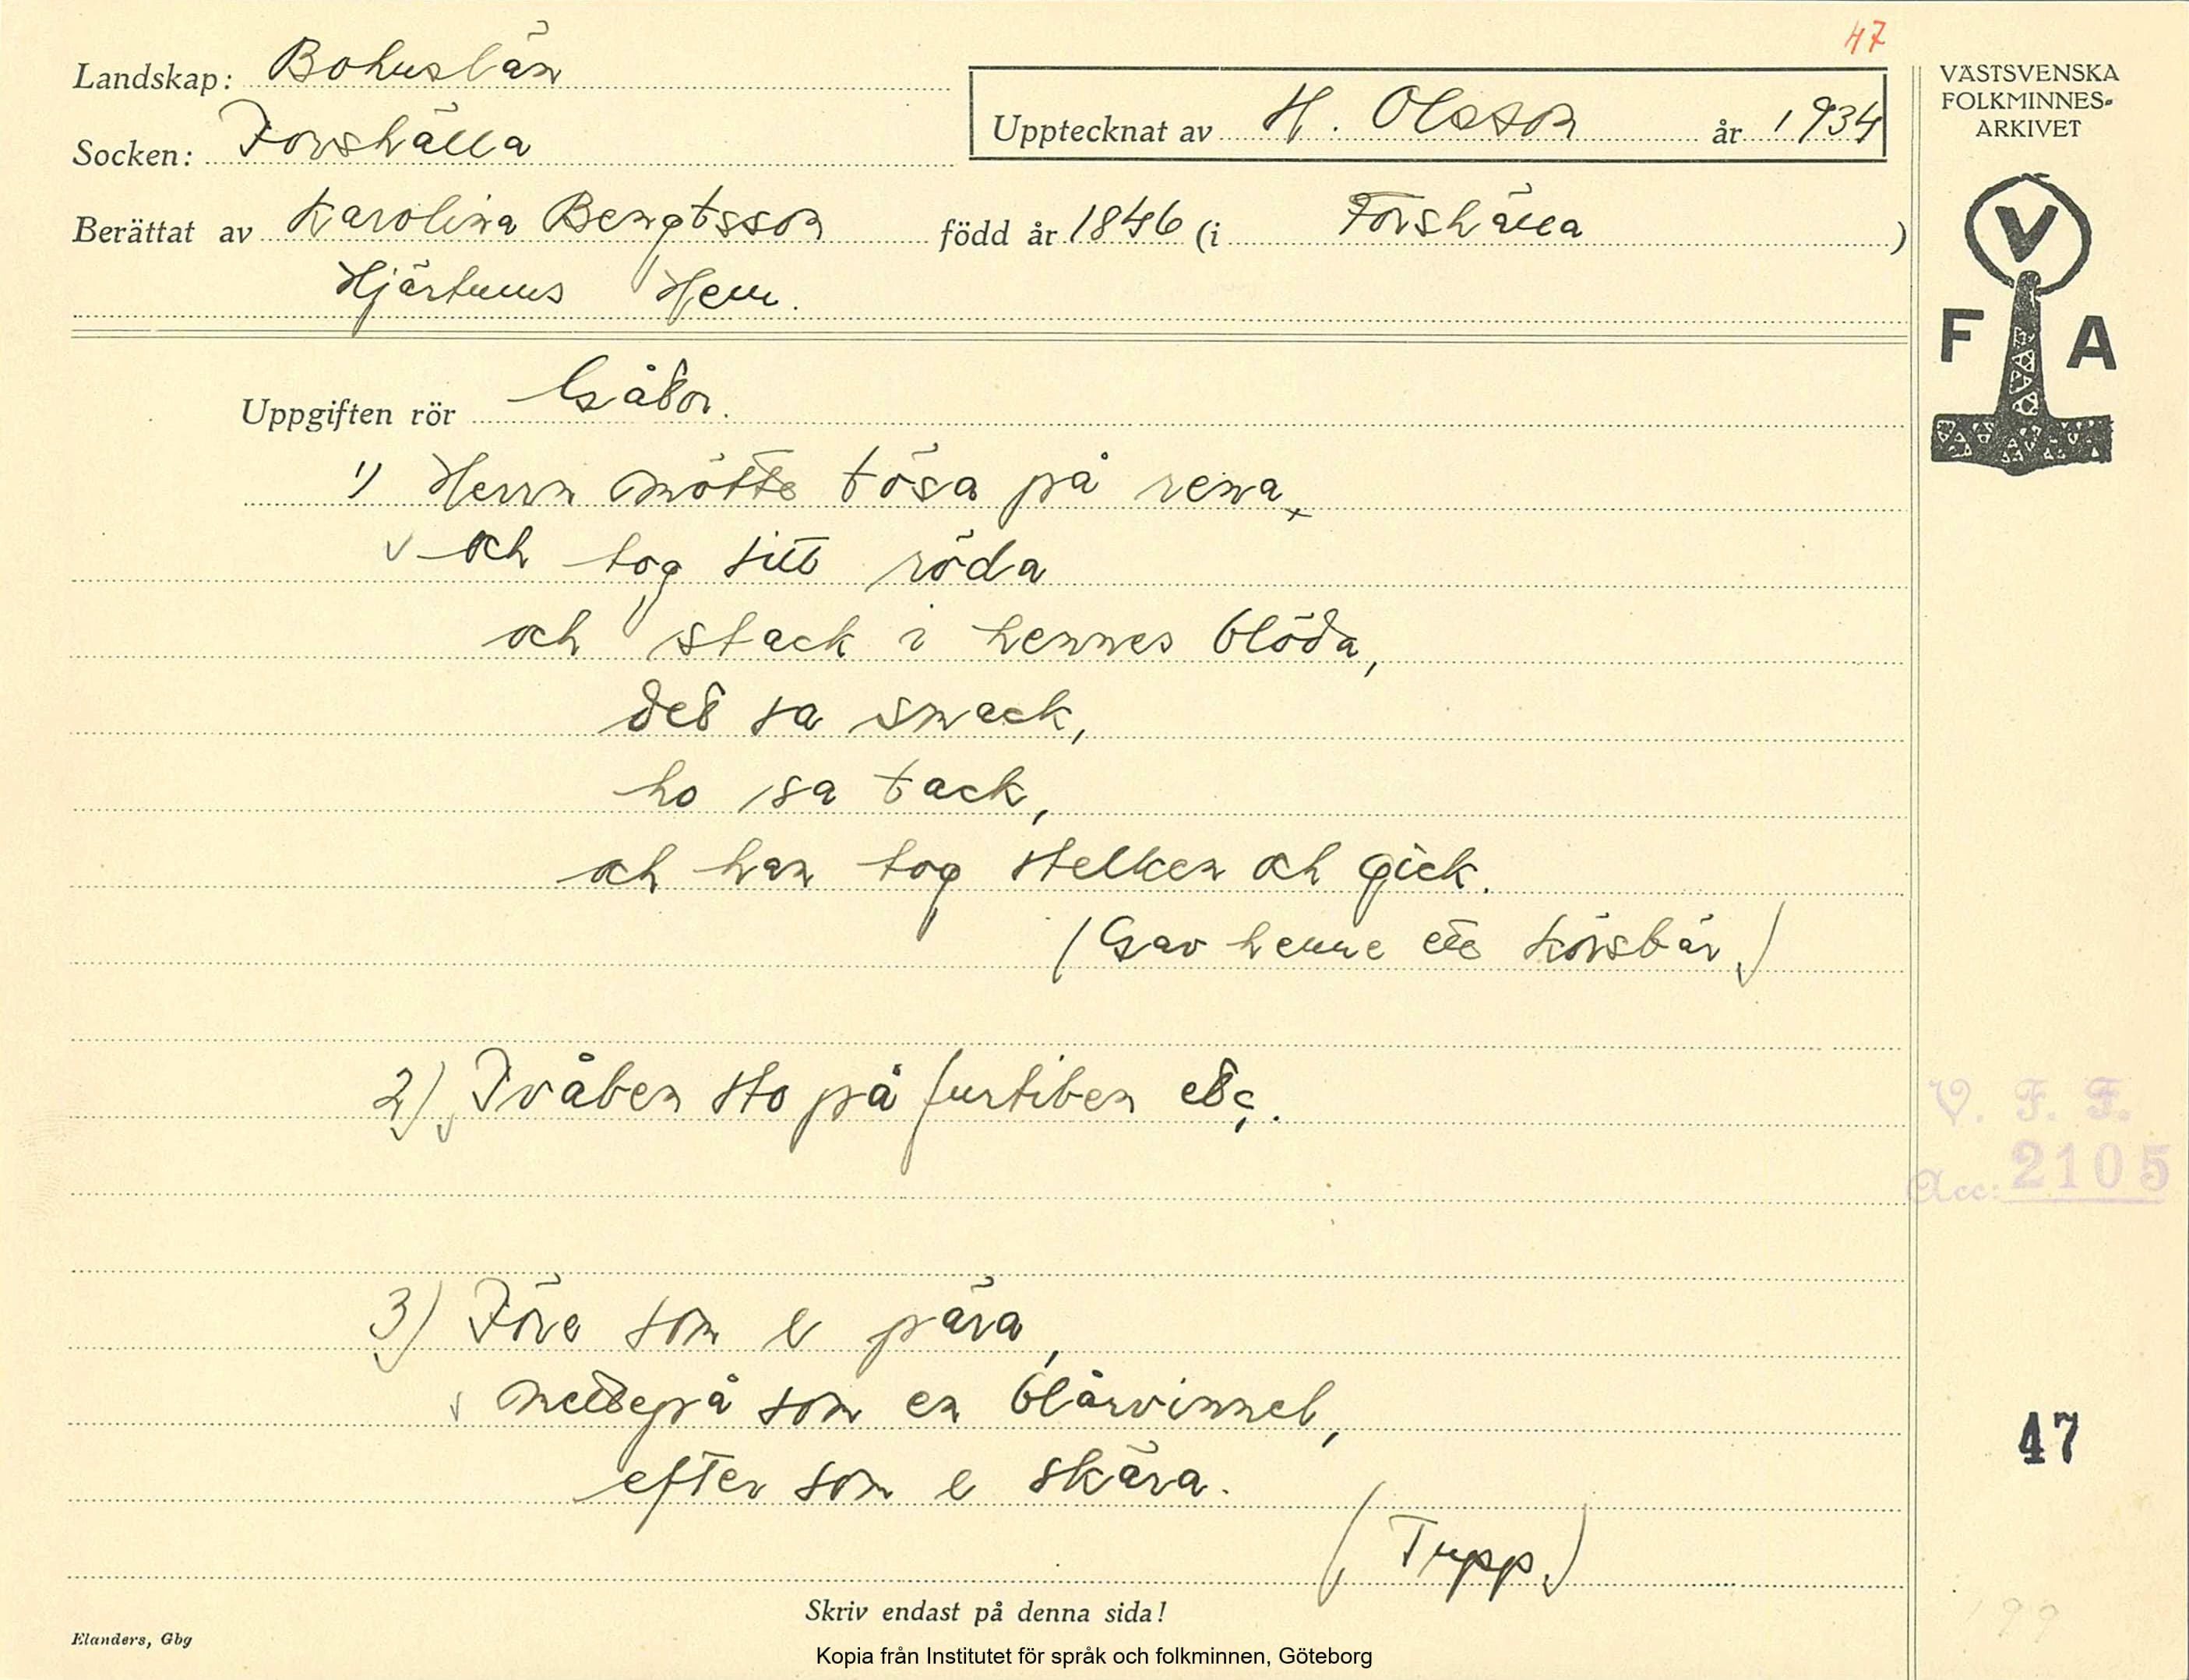 47
Landskap: Bohuslän
Socken: Forshälla
Upptecknat av H. Olsson år 1934
Berättat av Karolina Bengtsson född år 1846 (i Forshälla)
Hjärtums Hem.
VÄSTSVENSKA
FOLKMINNES-
ARKIVET
V
F A
Uppgiften rör Gåtor.
1) Herrn mötte tösa på rena
och tog sitt röda
och stack i hennes blöda,
det sa smack,
ho sa tack,
och han tog stelken och gick.
(Gav henne ett körsbär)
2) Tvåben sto på furtiben etc.
V. F. F.
Acc: 2105
3) Före som e pära,
mettepå som en blårvinnel,
efter som e skära.
(Tupp)
47
199
Skriv endast på denna sida!
Elanders, Gbg
Kopia från Institutet för språk och folkminnen, Göteborg